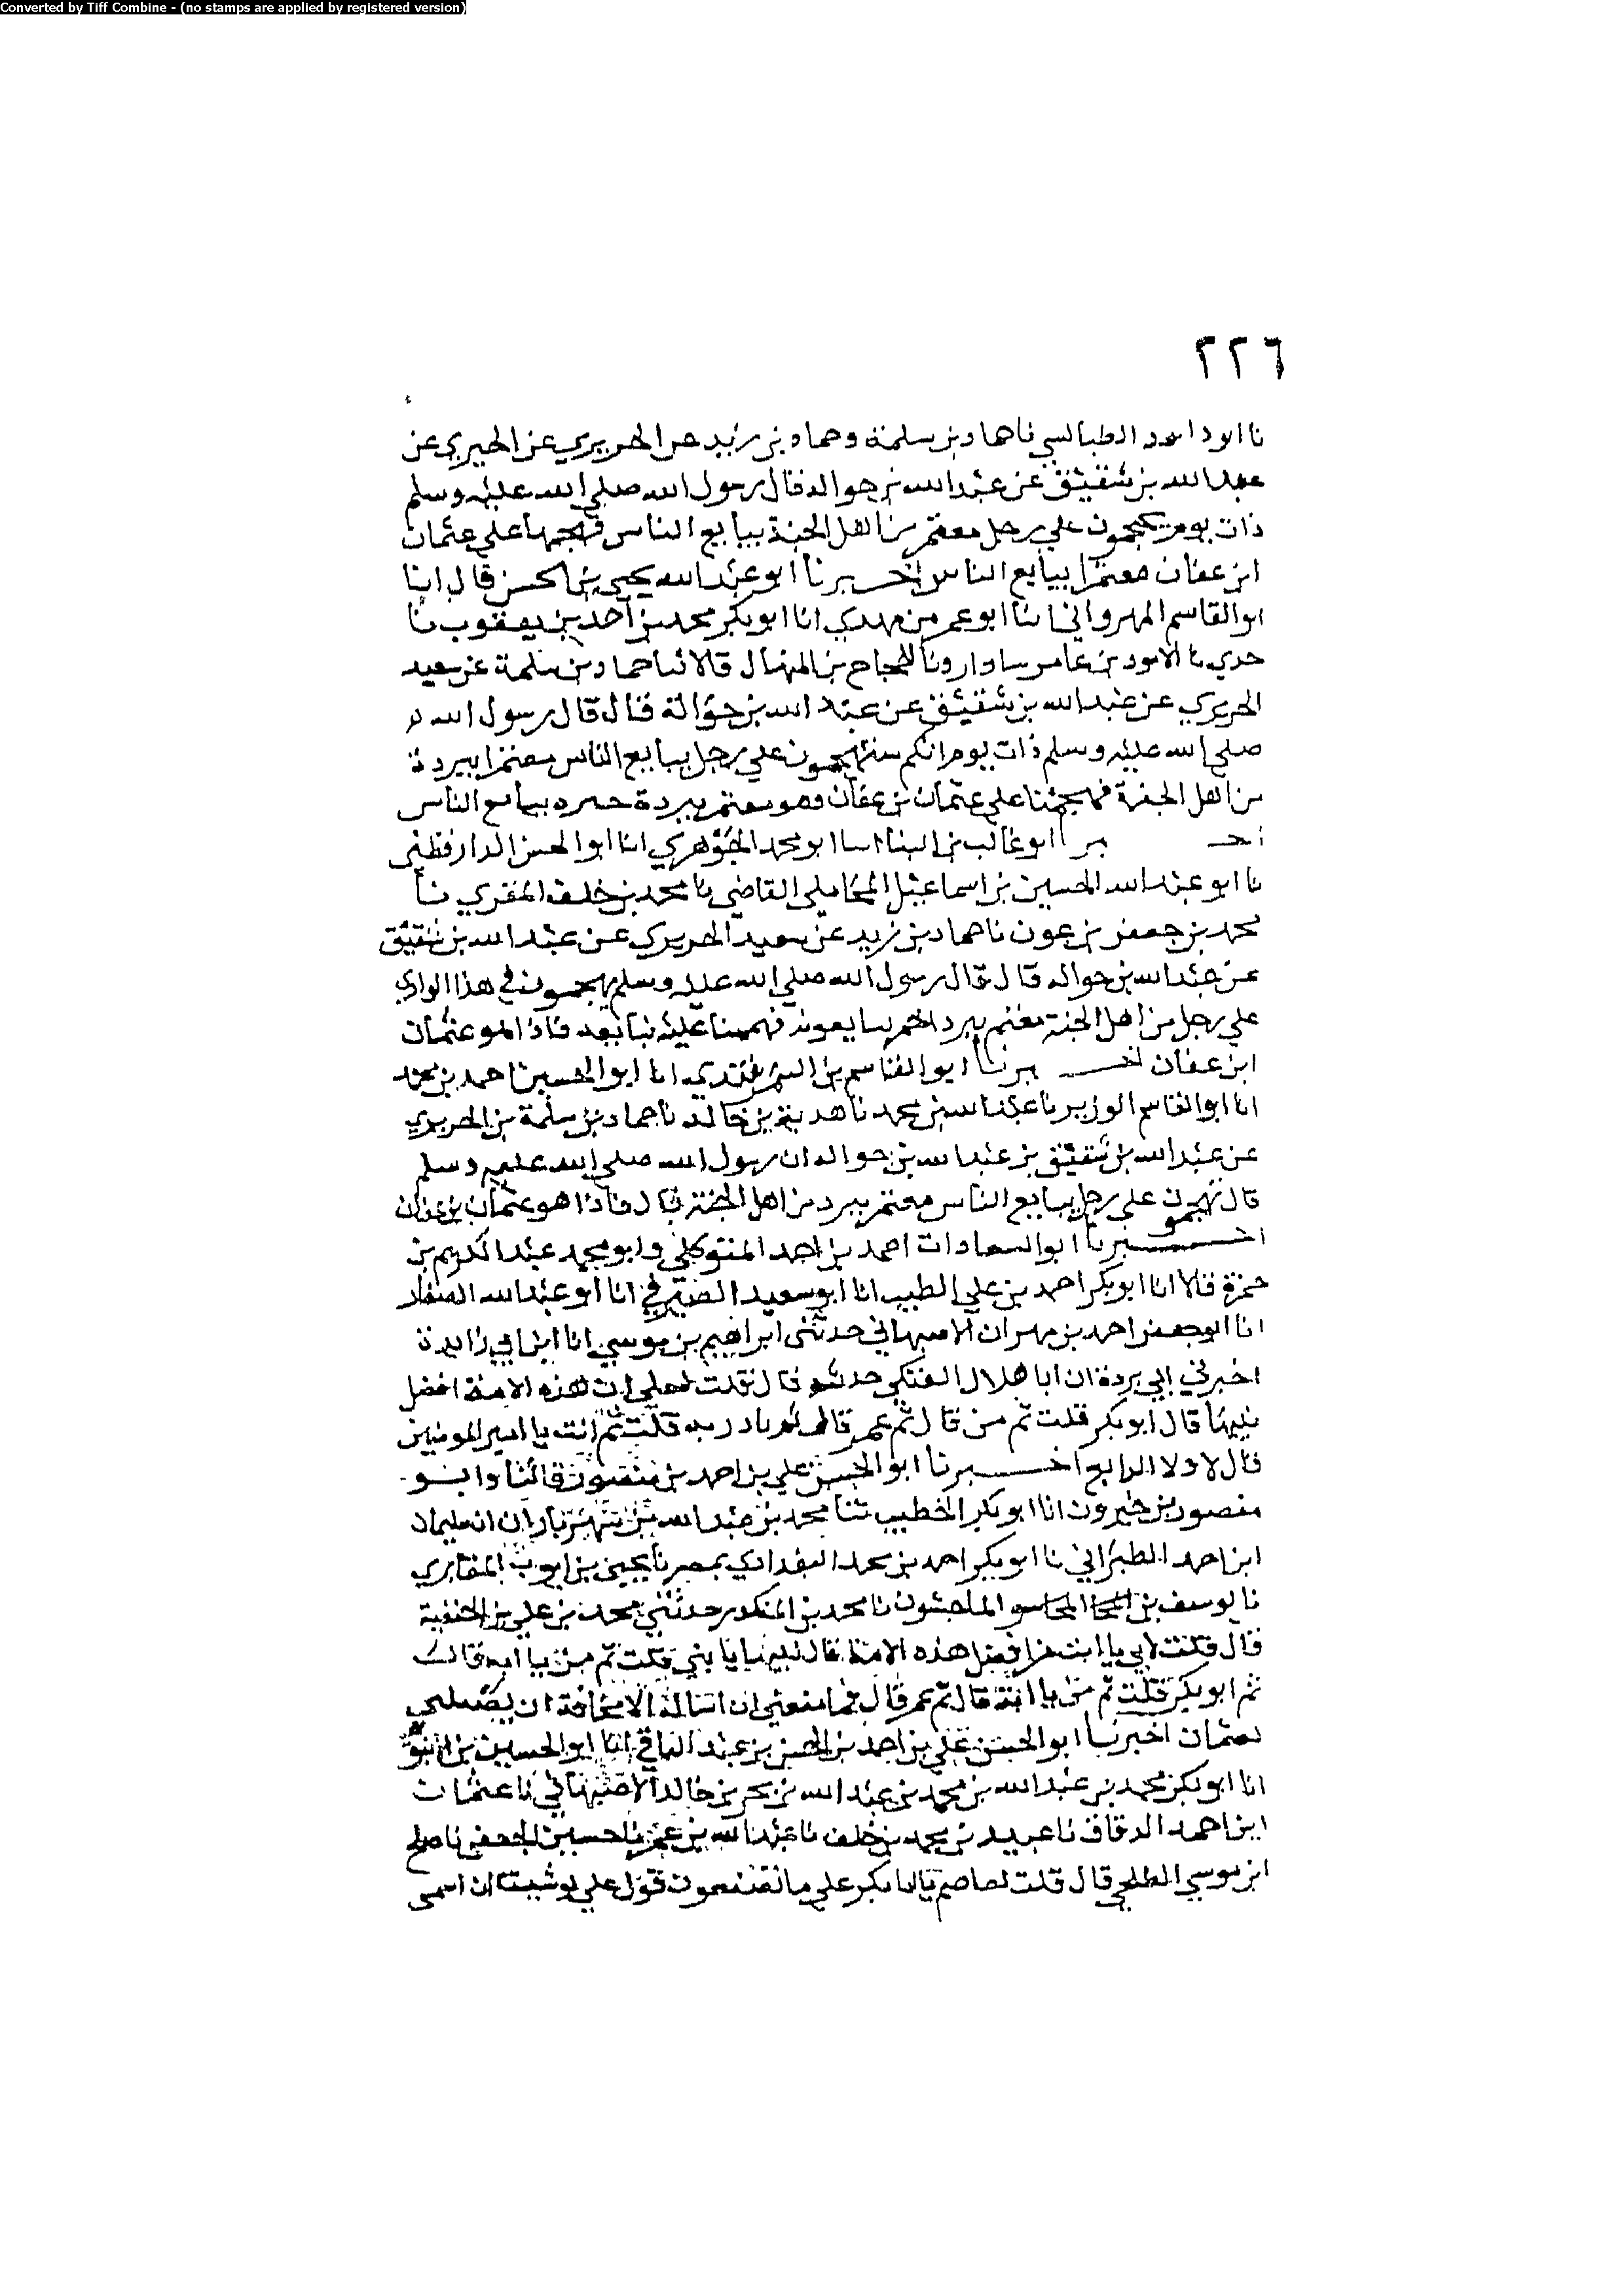 Converted by Tiff Combine - (no stamps are applied by registered version)
٢٢٦
نا ابو داود الطيالسي نا حماد بن سلمة وحماد بن زيد عن الجريري عن
عبد الله بن شقيق عن عبد الله بن حواله قال رسول الله صلى الله عليه وسلم
ذات يوم تهجمون على رجل معتمر من اهل الجنة يبايع الناس فهجمنا على عثمان
ابن عفان معتمرا يبايع الناس اخبرنا ابو عبد الله يحيى بن الحسن قال انبا
ابو القاسم المهرواني انا ابو عمر بن مهدي انا ابو بكر محمد بن احمد بن يعقوب نا
جدي نا الاسود بن عامر شاذان ونا الحجاج بن المنهال قالا نا حماد بن سلمة عن سعيد
الجريري عن عبد الله بن شقيق عن عبد الله بن حوالة قال قال رسول الله
صلى الله عليه وسلم ذات يوم انكم ستهجمون على رجل يبايع الناس معتمرا ببردة
من اهل الجنة فهجمنا على عثمان بن عفان وهو معتمر ببردة حبره يبايع الناس
اخبرنا ابو غالب بن البنا انا ابو محمد الجوهري انا ابو الحسن الدارقطني
نا ابو عبد الله الحسين بن اسماعيل المحاملي القاضي نا محمد بن خلف المقري نا
محمد بن جعفر بن عون نا حماد بن زيد عن سعيد الجريري عن عبد الله بن شقيق
عن عبد الله بن حواله قال قال رسول الله صلى الله عليه وسلم تهجمون في هذا الوادي
على رجل من اهل الجنة معتم ببرد احمر يبايعونه فهجمنا عليه نبايعه فاذا هو عثمان
ابن عفان اخبرنا ابو القاسم بن السمرقندي انا ابو الحسين احمد بن محمد
انا ابو القاسم الوزير نا عبد الله بن محمد نا هدبة بن خالد نا حماد بن سلمة بن الجريري
عن عبد الله بن شقيق بن عبد الله بن حواله ان رسول الله صلى الله عليه وسلم
قال تهجمون على رجل يبايع الناس معتمر ببرد من اهل الجنة قال فاذا هو عثمان بن عفان
اخبرنا ابو السعادات احمد بن احمد المتوكلي وابو محمد عبد الكريم بن
حمزة قالا انا ابو بكر احمد بن علي الخطيب انا ابو سعيد الصيرفي انا ابو عبد الله الصفار
انا ابو جعفر احمد بن مهران الاصبهاني حدثني ابراهيم بن موسى انا ابن ابي زائدة
اخبرني ابي بردة ان ابا هلال العتكي حدثه قال قلت لعلي ان هذه الامة افضل
نبيها قال ابو بكر قلت ثم من قال ثم عمر قال ثم بادرته قلت ثم انت يا امير المومنين
قال لا ولا الرابع اخبرنا ابو الحسن علي بن احمد بن منصور قالنا وابو
منصور بن خيرون انا ابو بكر الخطيب ثنا محمد بن عبد الله بن شهريار ان انا سليمان
ابن احمد الطبراني نا ابو بكر احمد بن محمد البغدادي بمصر نا يحيى بن ايوب المقابري
نا يوسف بن الماجشون نا محمد بن المنكدر حدثني محمد بن علي بن الحنفية
قال قلت لابي يا ابت من افضل هذه الامة قال نبيها يا بني قلت ثم من يا ابه قال
ثم ابو بكر قلت ثم من يا ابة قال ثم عمر قال فما منعني ان اساله الا مخافة ان يفضلهم
بعثمان اخبرنا ابو الحسن علي بن احمد بن الحسن بن عبد الباقي انا ابو الحسين بن النقور
انا ابو بكر محمد بن عبد الله بن محمد بن عبد الله بن بحر بن خالد الاصبهاني نا عثمان
ابن احمد الدقاق نا عبيد بن محمد بن خلف نا عبد الله بن عمر نا حسين الجعفي نا صالح
ابن موسى الطلحي قال قلت لعاصم يا ابا بكر على ما تضعون قول علي لو شئت ان اسمي